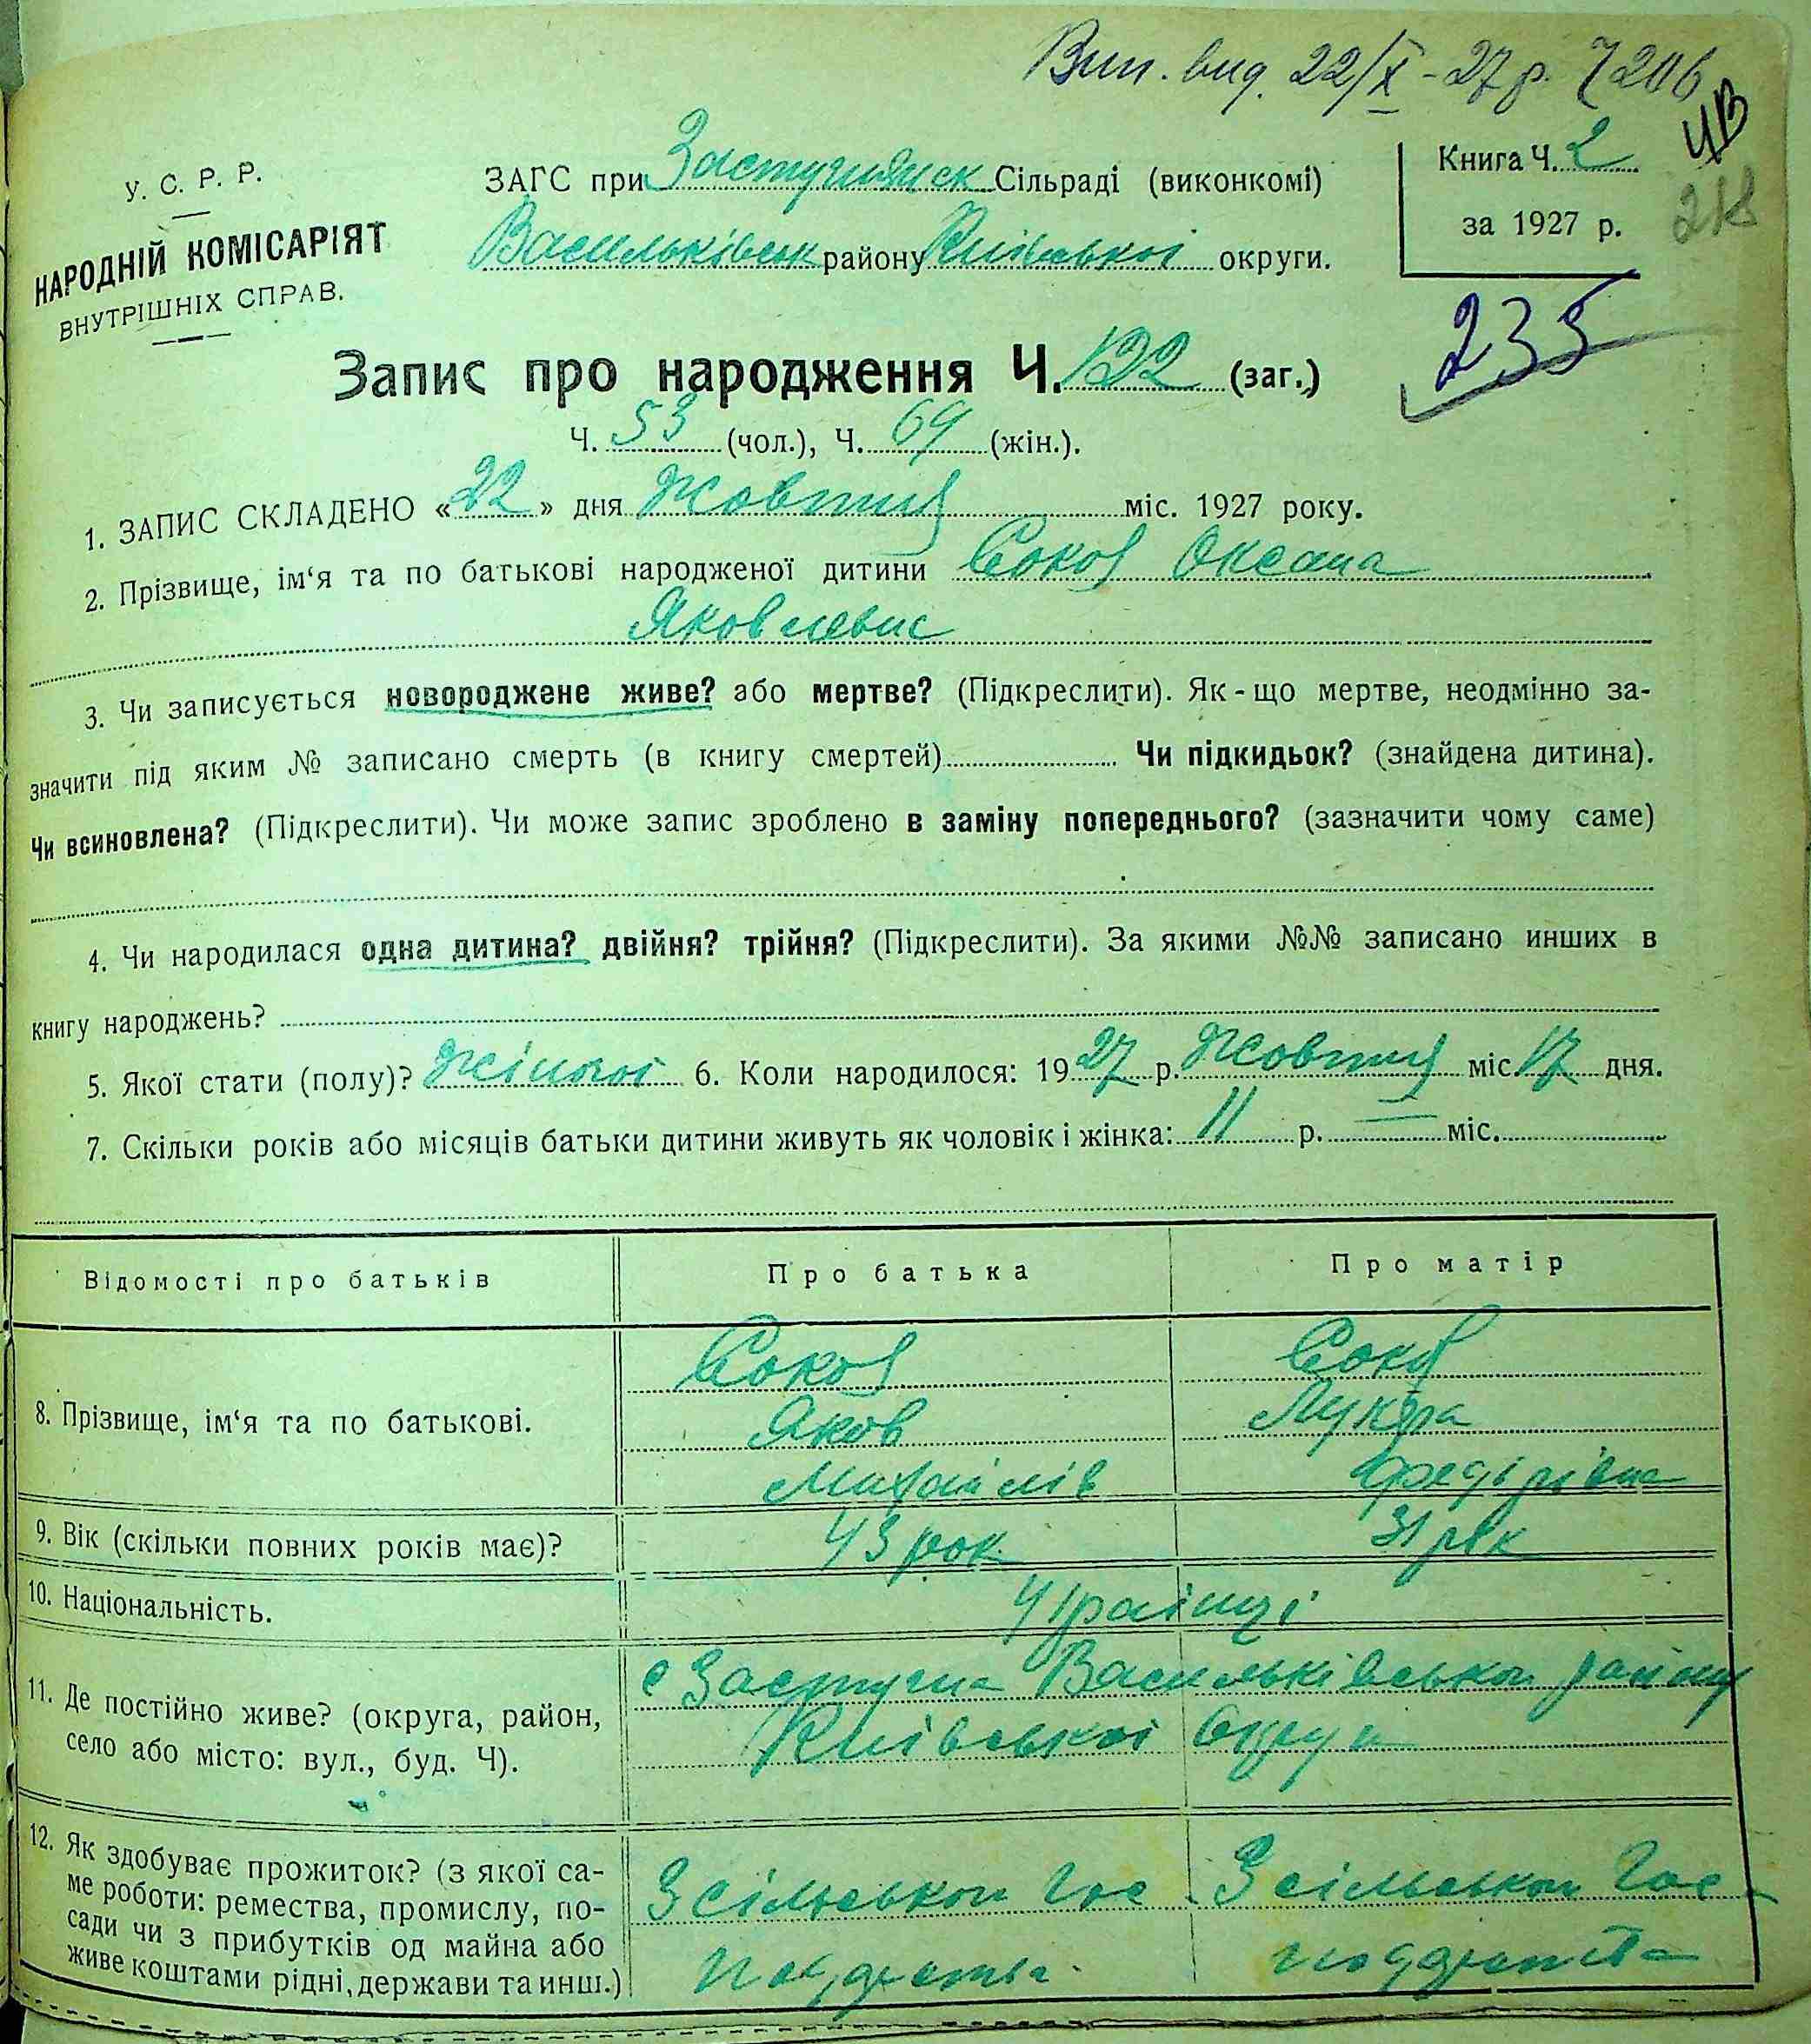 Вип. вид. 22/X - 27 р.
У. С. Р. Р.
НАРОДНІЙ КОМІСАРІЯТ
ВНУТРІШНІХ СПРАВ.
ЗАГС при Застугнянск Сільраді (виконкомі)
Васильківськ району Київської округи.
Книга Ч. 2
за 1927 р.
235
Запис про народження Ч. 122 (заг.)
Ч. 53 (чол.), Ч. 69 (жін.).
1. ЗАПИС СКЛАДЕНО «22» дня Жовтня міс. 1927 року.
2. Прізвище, ім‘я та по батькові народженої дитини Сокол Оксана
Яковлевна
3. Чи записується новороджене живе? або мертве? (Підкреслити). Як-що мертве, неодмінно за-
значити під яким № записано смерть (в книгу смертей) Чи підкидьок? (знайдена дитина).
Чи всиновлена? (Підкреслити). Чи може запис зроблено в заміну попереднього? (зазначити чому саме)
4. Чи народилася одна дитина? двійня? трійня? (Підкреслити). За якими №№ записано инших в
книгу народжень?
5. Якої стати (полу)? Жіночої 6. Коли народилося: 1927 р. Жовтня міс. 17 дня.
7. Скільки років або місяців батьки дитини живуть як чоловік і жінка: 11 р. — міс.
Відомості про батьків Про батька Про матір
8. Прізвище, ім‘я та по батькові.
Сокол Сокол
Яков Лукєра
Михайлів Федорівна
9. Вік (скільки повних років має)? 43 рок 31 рік
10. Національність. Українці
11. Де постійно живе? (округа, район,
село або місто: вул., буд. Ч).
с Застугна Васильківськои району
Київської Округи
12. Як здобуває прожиток? (з якої са-
ме роботи: ремества, промислу, по-
сади чи з прибутків од майна або
живе коштами рідні, держави та инш.)
З сільськои Гос З сільськои Гос